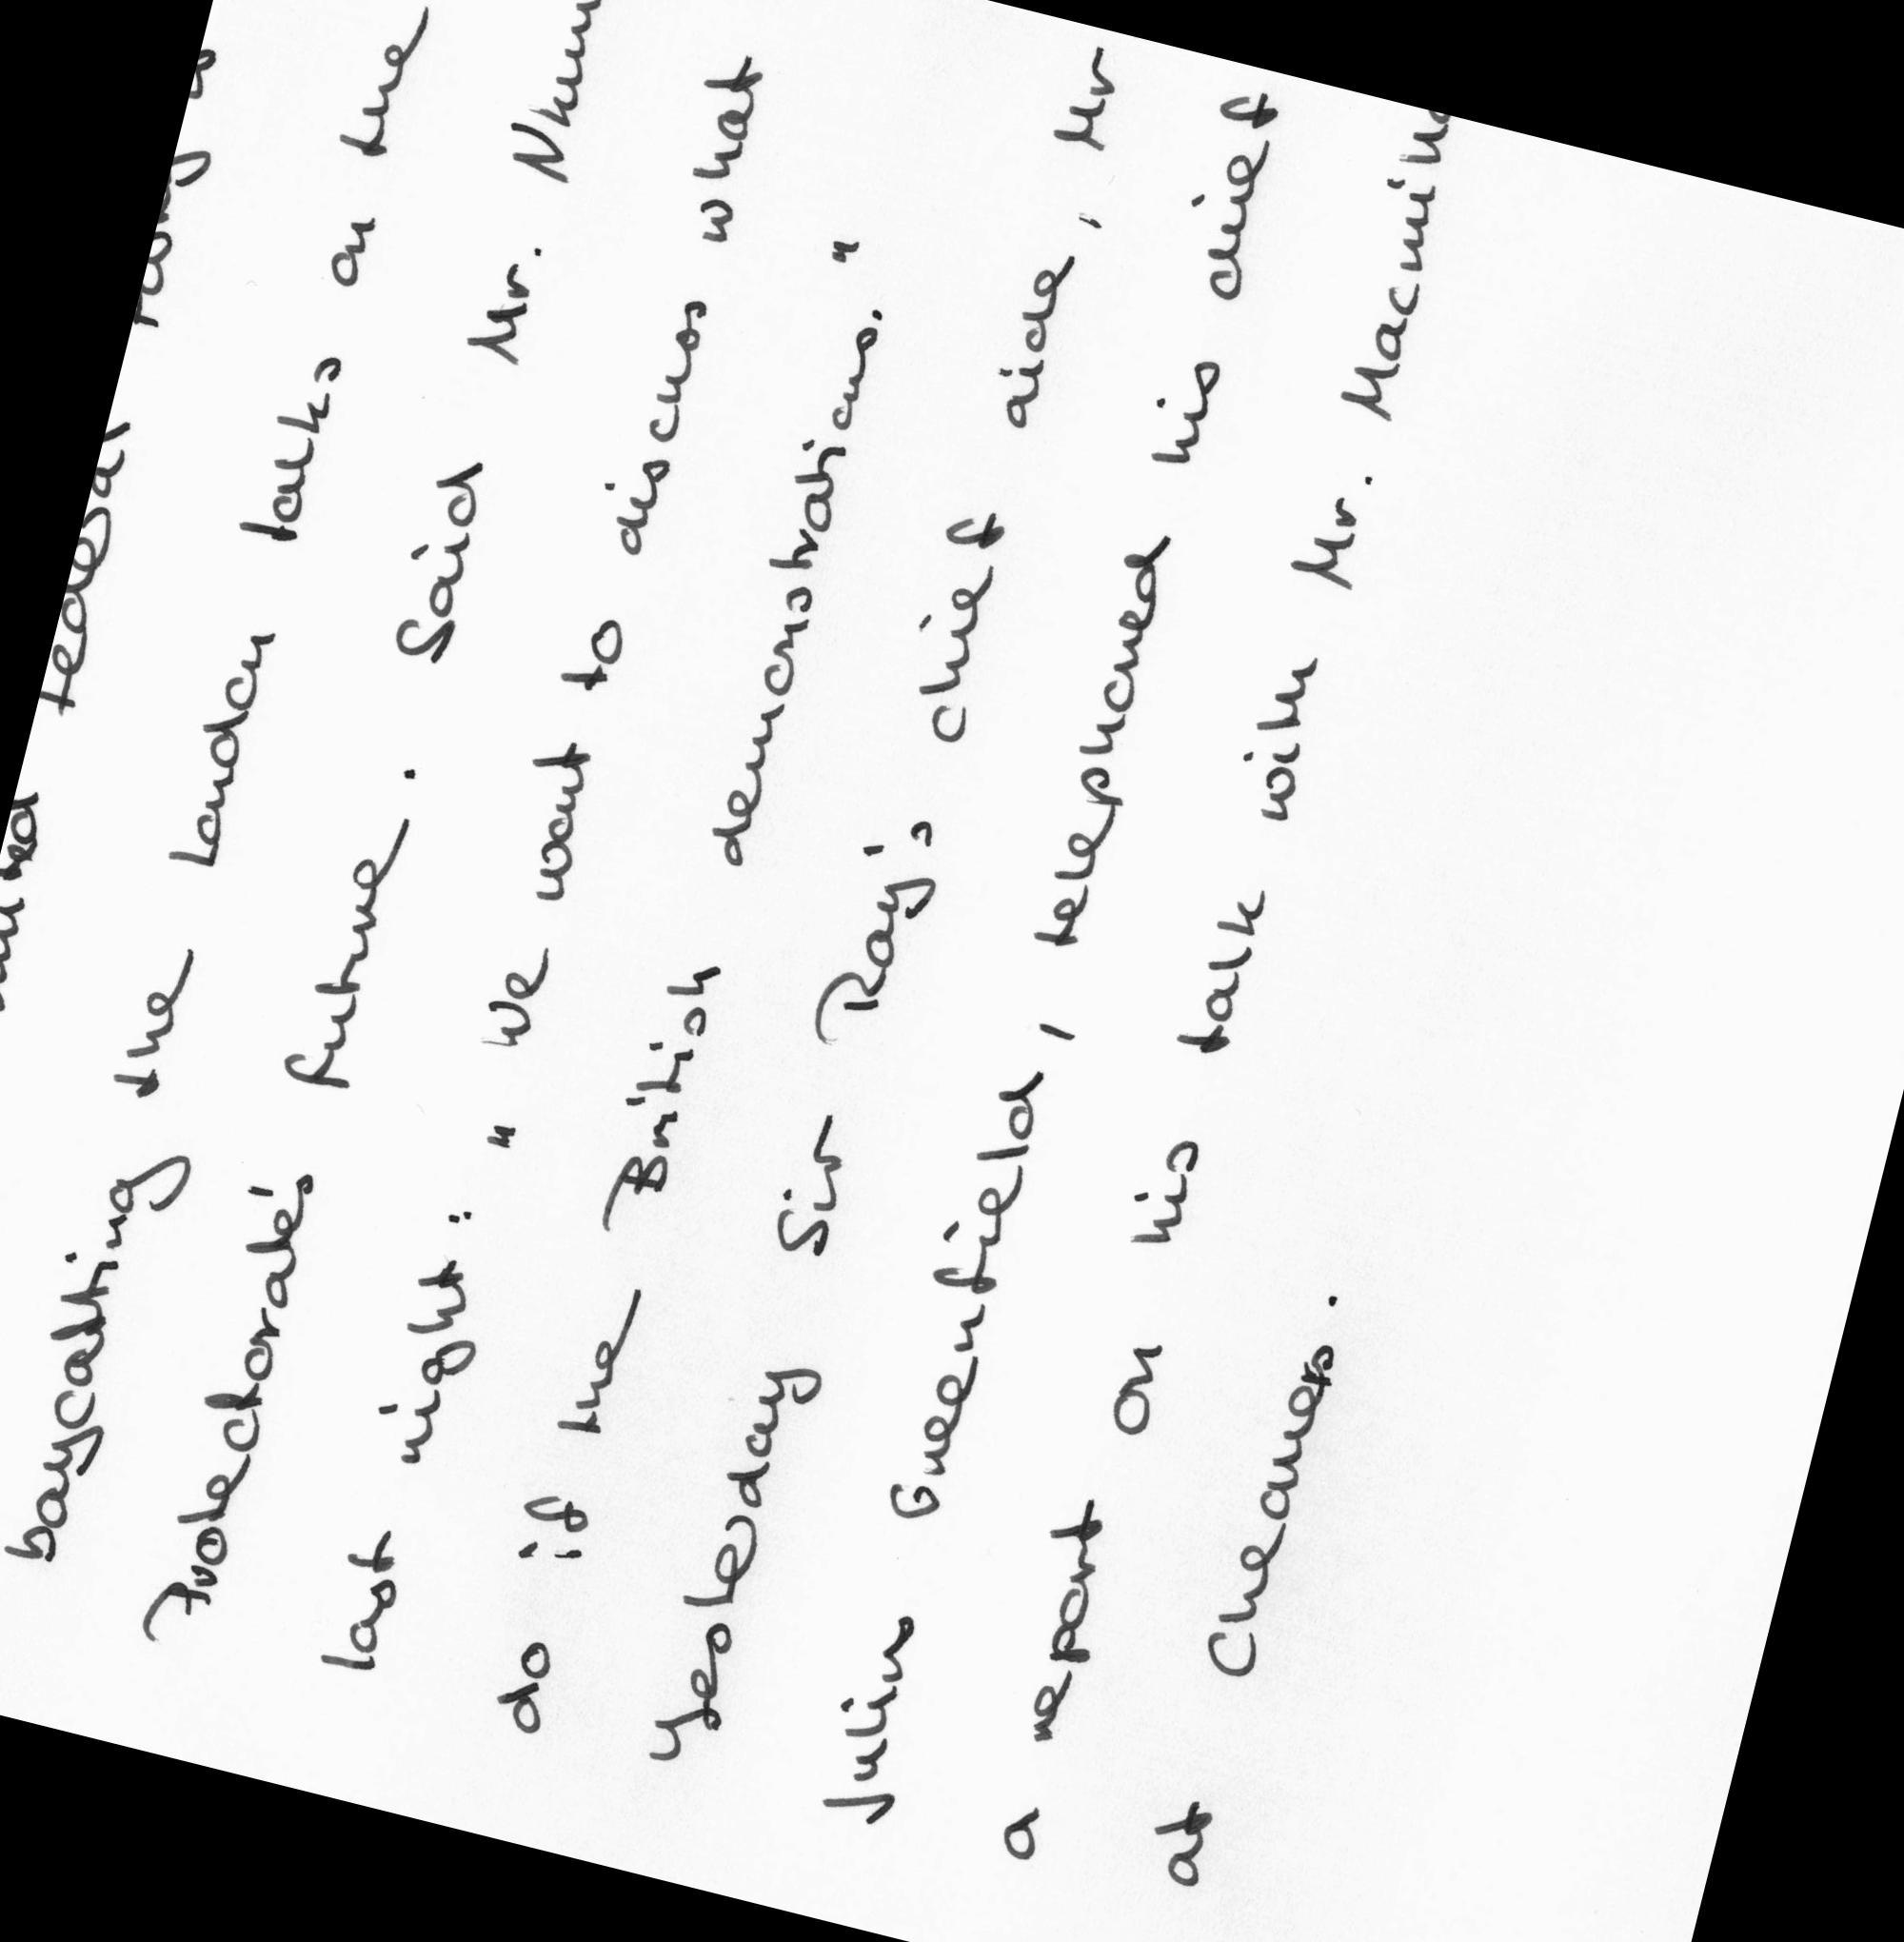 boycotting the London talks on the
Protectorate's future. Said Mr.
last night: "We want to discuss what
do if the British demonstrations."
Yesterday Sir Roy's chief aide, Mr
Julius Greenfield, telephoned his chief
a report on his talk with Mr.
at Chequers.